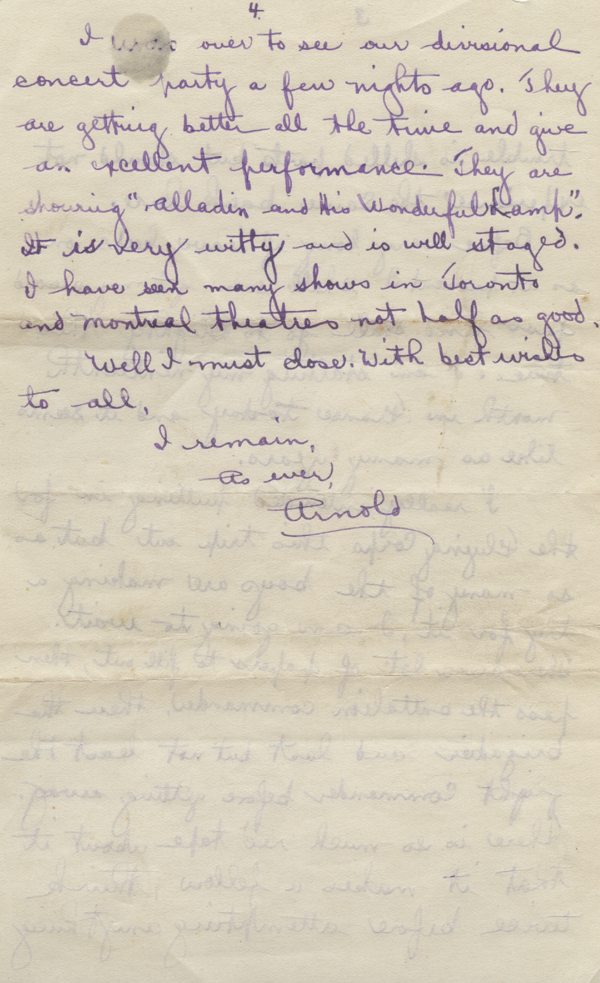 4.
I was over to see our divisional
concert party a few nights ago. They
are getting better all the time and give
an excellent performance. They are
showing "Alladin and His Wonderful Lamp".
It is very witty and is well staged.
I have seen many shows in Toronto
and Montreal theatres not half as good.
Well I must close. With best wishes
to all,
I remain,
As ever,
Arnold